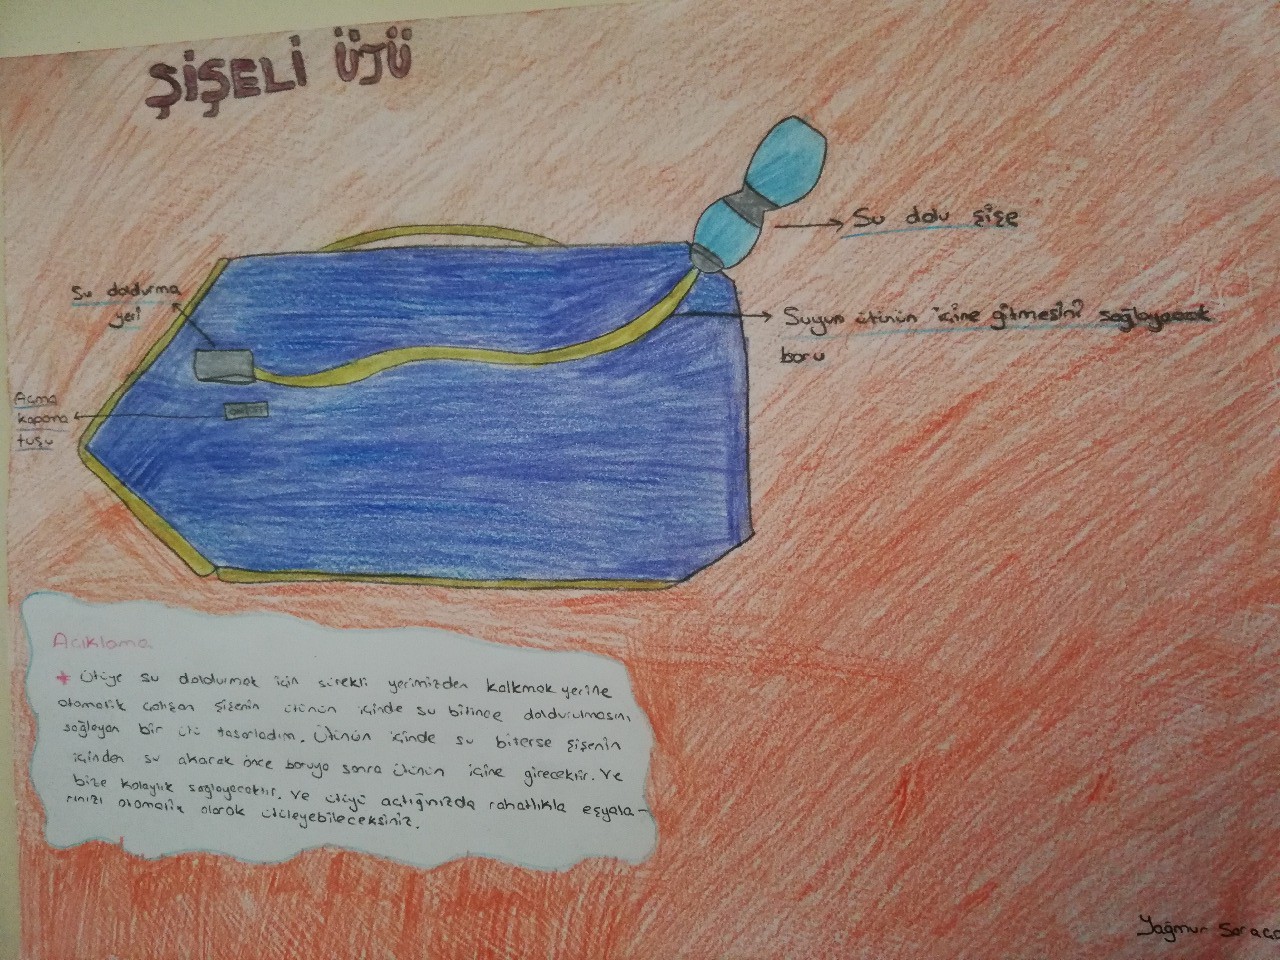 ŞİŞELİ ÜTÜ
Su dolu şişe
Su doldurma
yeri
Suyun ütünün içine gitmesini sağlayacak
boru
Açma
kapama
tuşu
ON/OFF
Açıklama
* Ütüye su doldurmak için sürekli yerimizden kalkmak yerine
otomatik çalışan şişenin ütünün içinde su bitince doldurulmasını
sağlayan bir ütü tasarladım. Ütünün içinde su biterse şişenin
içinden su akarak önce boruya sonra ütünün içine girecektir. Ve
bize kolaylık sağlayacaktır. Ve ütüyü açtığınızda rahatlıkla eşyala-
rınızı otomatik olarak ütüleyebileceksiniz.
Yağmur